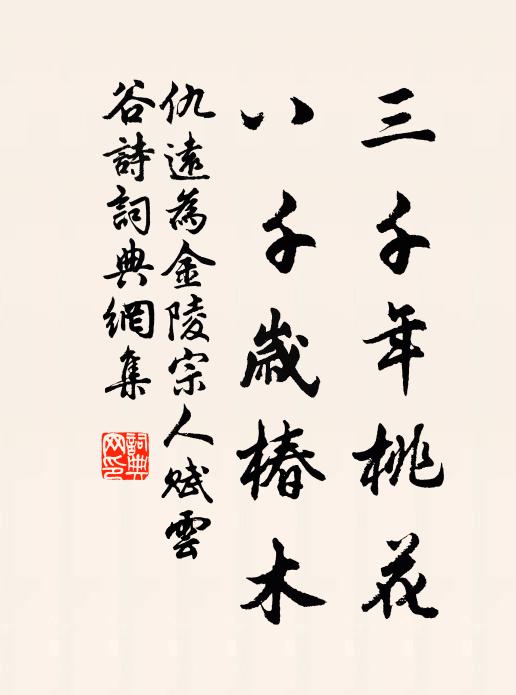 三千年桃花
八千歲椿木
仇遠為金陵宗人賦雲
谷詩詞典網集
詞典
网印